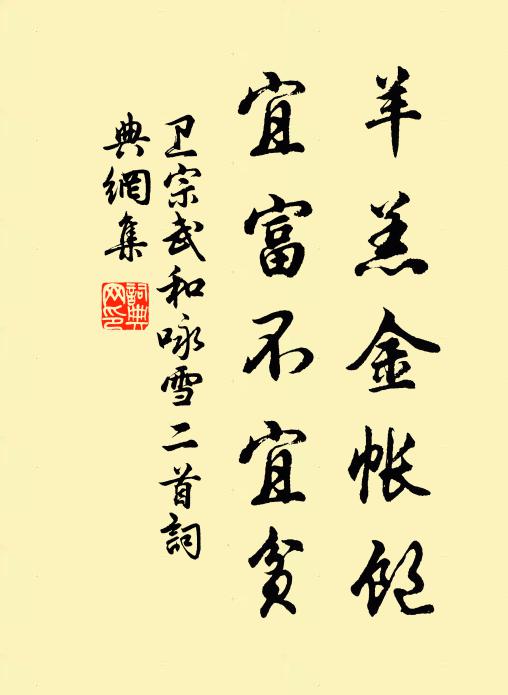 羊羔金帐饱
宜富不宜贫
卫宗武和咏雪二首詞
典網集
詞典
网印